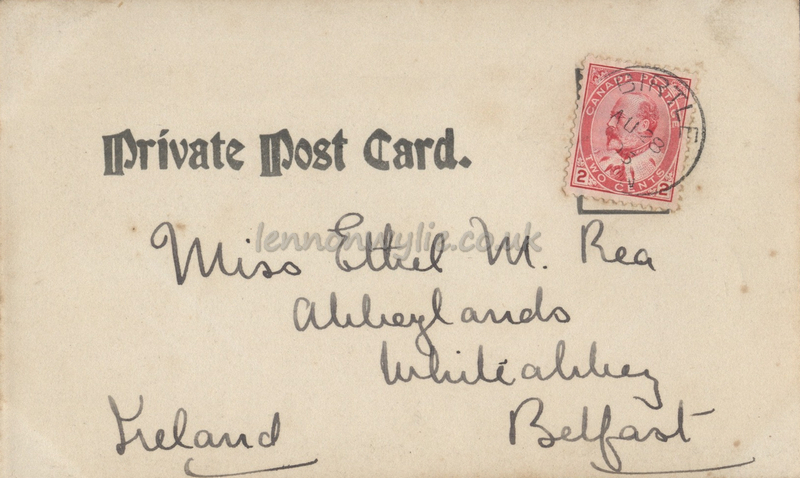 CANADA POSTAGE
BIRTLE
AU 28
2 TWO CENTS 2
Private Post Card.
lennonwylie.co.uk
Miss Ethel M. Rea
Abbeylands
Whiteabbey
Ireland Belfast